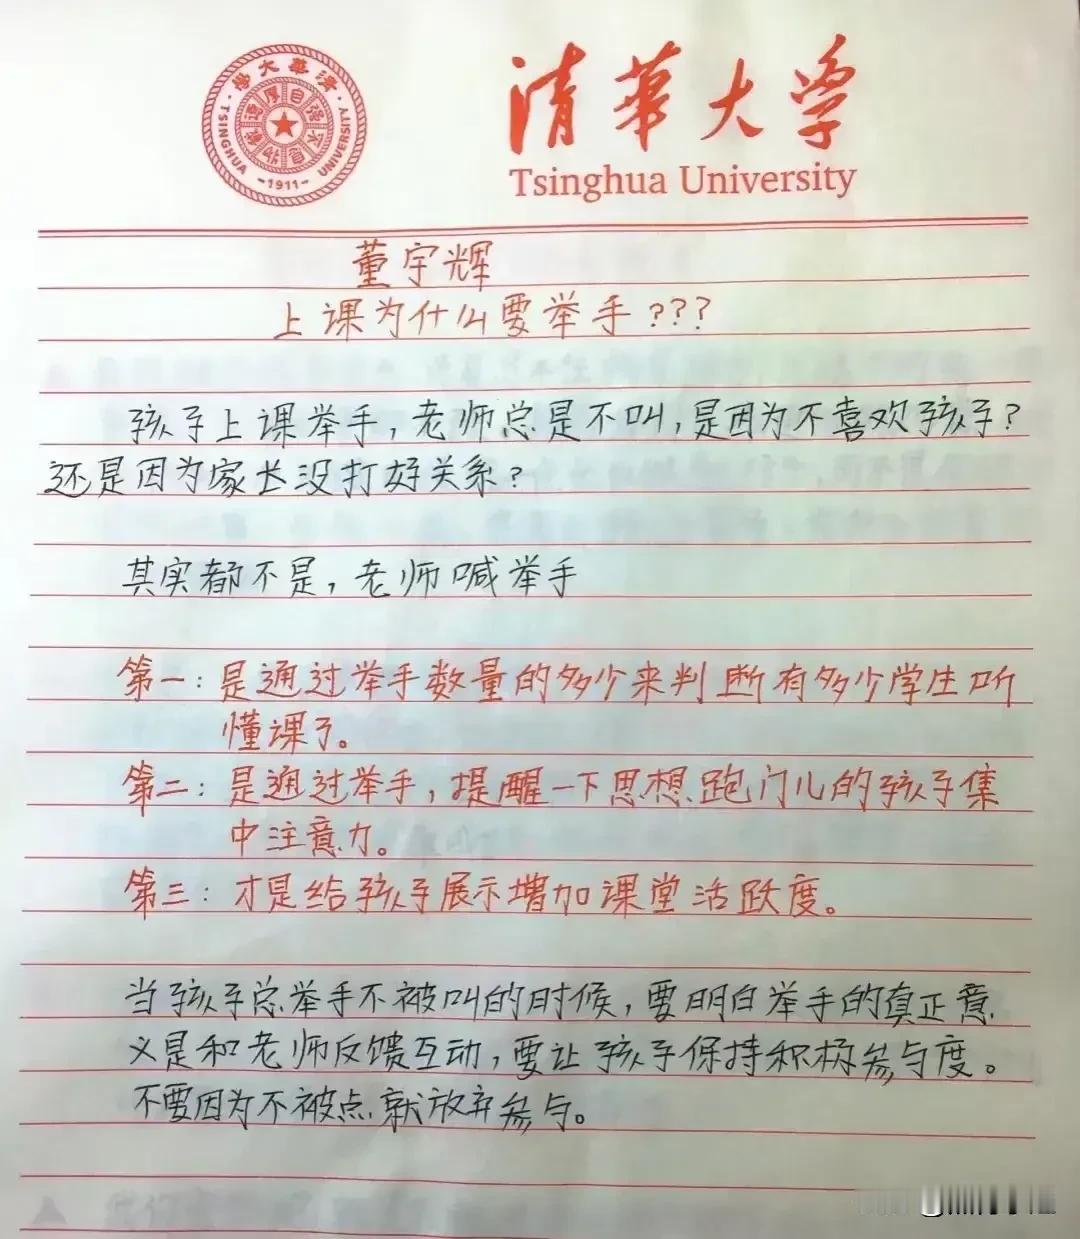 清华大学
TSINGHUA UNIVERSITY
自强不息
厚德载物
-1911-
清华大学
Tsinghua University
董宇辉
上课为什么要举手???
孩子上课举手,老师总是不叫,是因为不喜欢孩子?
还是因为家长没打好关系?
其实都不是,老师喊举手
第一:是通过举手数量的多少来判断有多少学生听
懂课了。
第二:是通过举手,提醒一下思想跑门儿的孩子集
中注意力。
第三:才是给孩子展示增加课堂活跃度。
当孩子总举手不被叫的时候,要明白举手的真正意
义是和老师反馈互动,要让孩子保持积极参与度。
不要因为不被点就放弃参与。